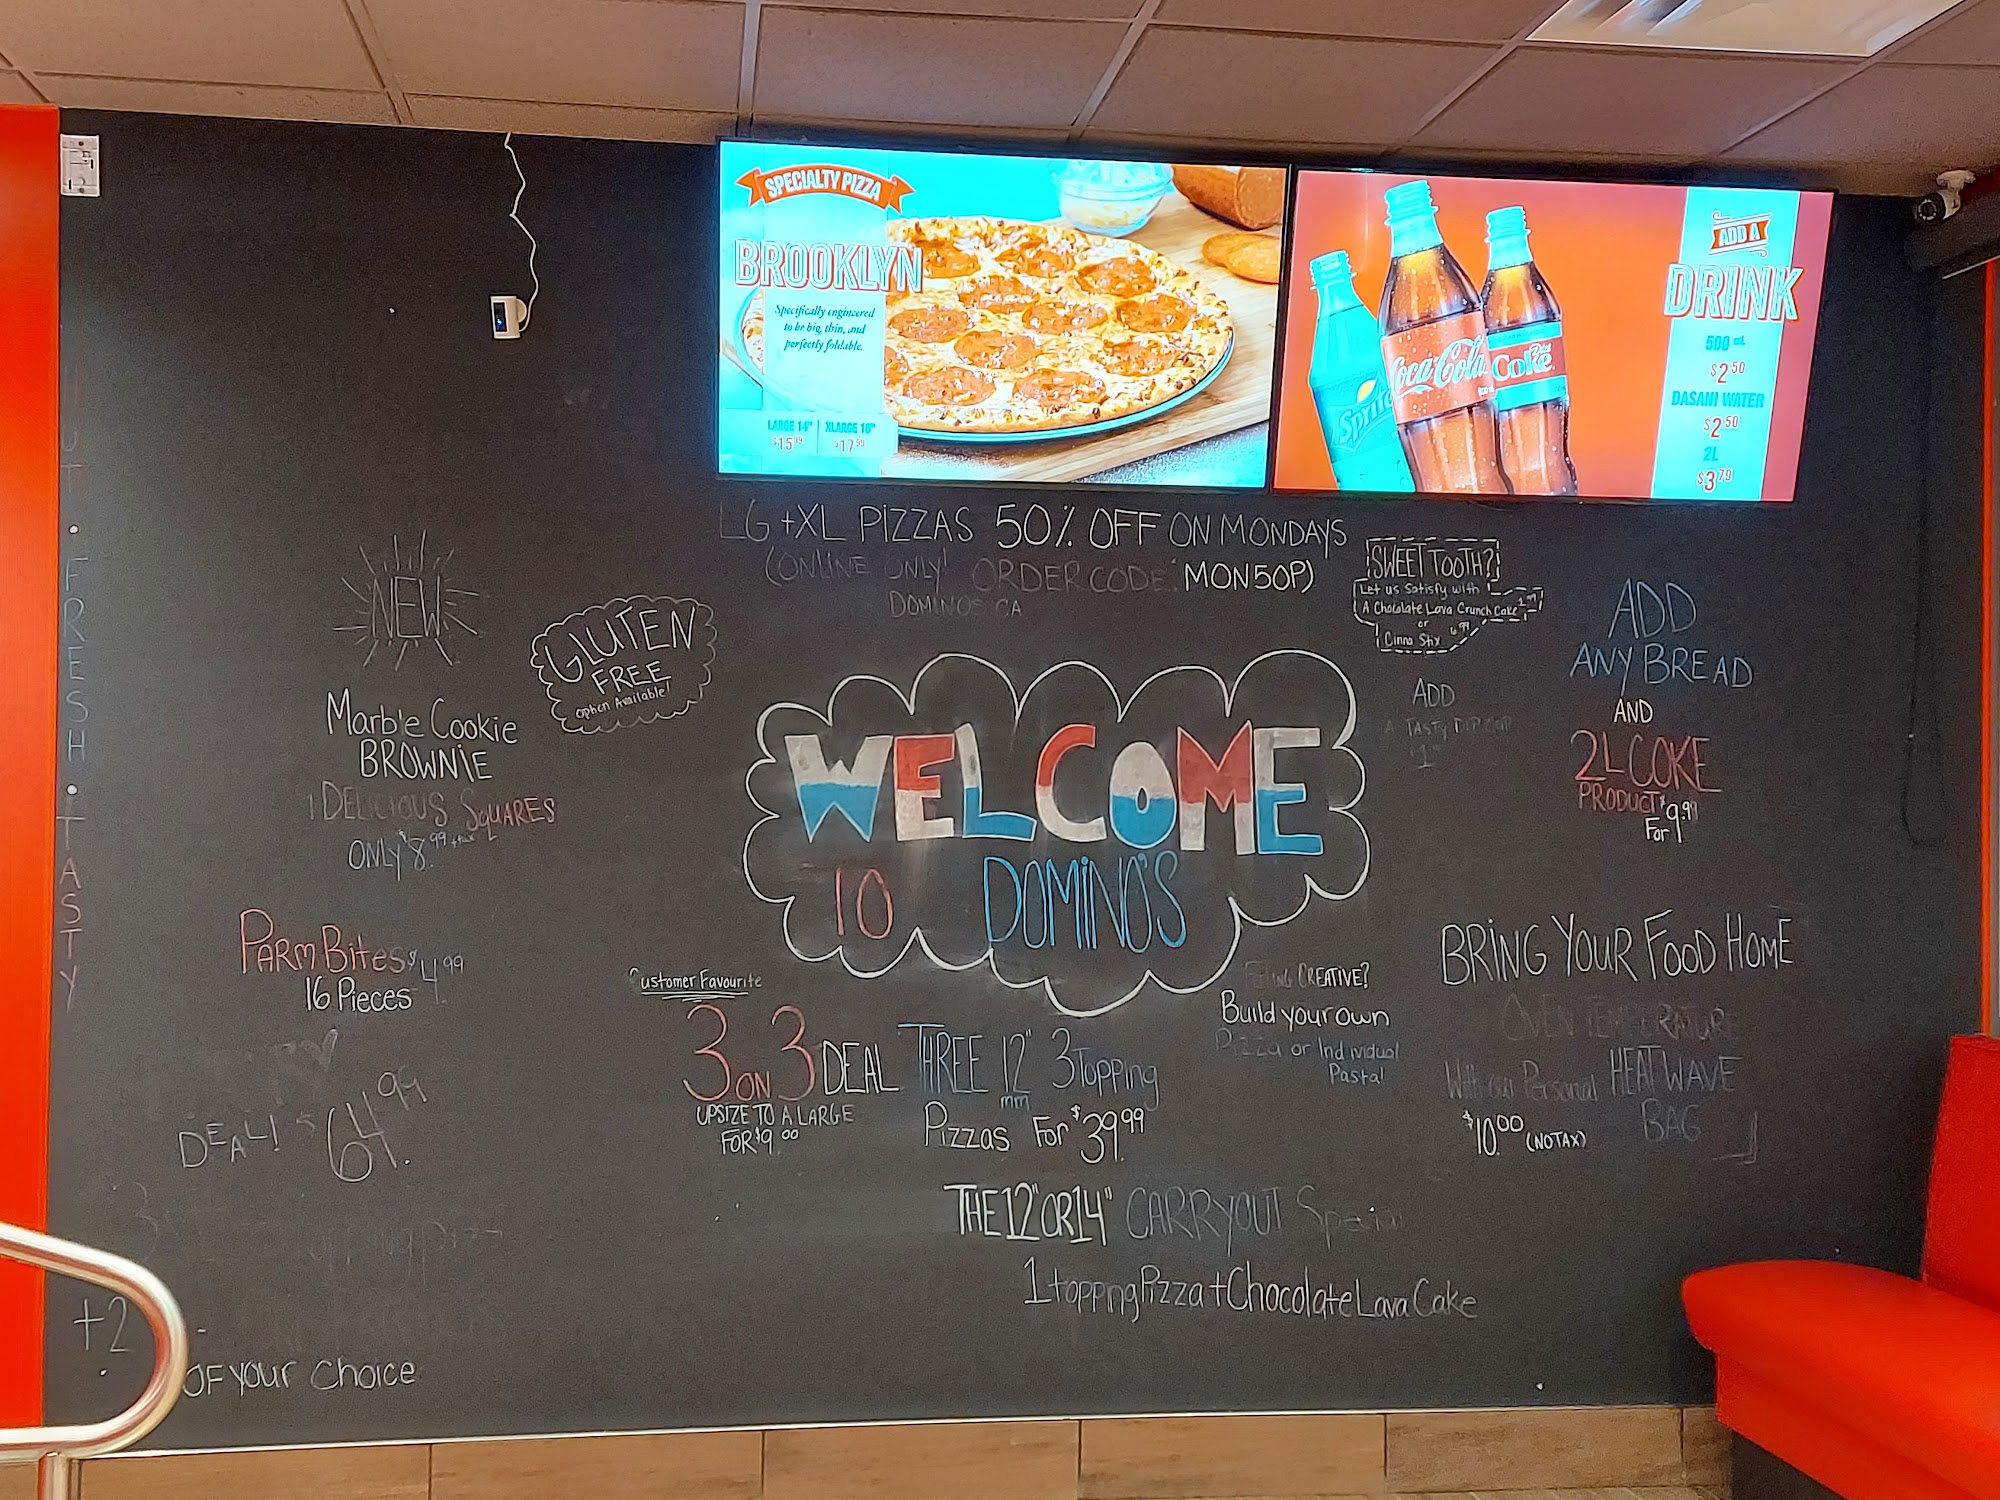 SPECIALTY PIZZA
BROOKLYN
Specifically engineered
to be big, thin, and
perfectly foldable.
LARGE 14" XLARGE 16"
$15.99 $17.59
ADD A
DRINK
500 mL
$2.50
DASANI WATER
$2.50
2L
$3.79
Sprite
Coca-Cola
Diet
Coke
LG + XL PIZZAS 50% OFF ON MONDAYS
(ONLINE ONLY! ORDER CODE: MON50P)
DOMINOS.CA
SWEET TOOTH?
Let us Satisfy with
A Chocolate Lava Crunch Cake
or
Cinna Stix 6.99
ADD
ANY BREAD
AND
2L COKE
PRODUCT
For $9.99
ADD
A TASTY DIP CUP
FRESH • TASTY
NEW
Marble Cookie
BROWNIE
DELICIOUS SQUARES
ONLY $8.99 + tax
GLUTEN
FREE
Option Available!
WELCOME
TO DOMINO'S
PARM BITES $4.99
16 Pieces
DEAL! $64.99
+2
OF YOUR CHOICE
Customer Favourite
3 ON 3 DEAL THREE 12" 3 Topping
mm
UPSIZE TO A LARGE
FOR $9.00
Pizzas For $39.99
Feeling CREATIVE?
Build your own
Pizza or Individual
Pasta!
BRING YOUR FOOD HOME
OVEN TEMPERATURE
With our Personal HEATWAVE
BAG
$10.00 (NO TAX)
THE 12" OR 14" CARRYOUT Special
1 topping Pizza + Chocolate Lava Cake